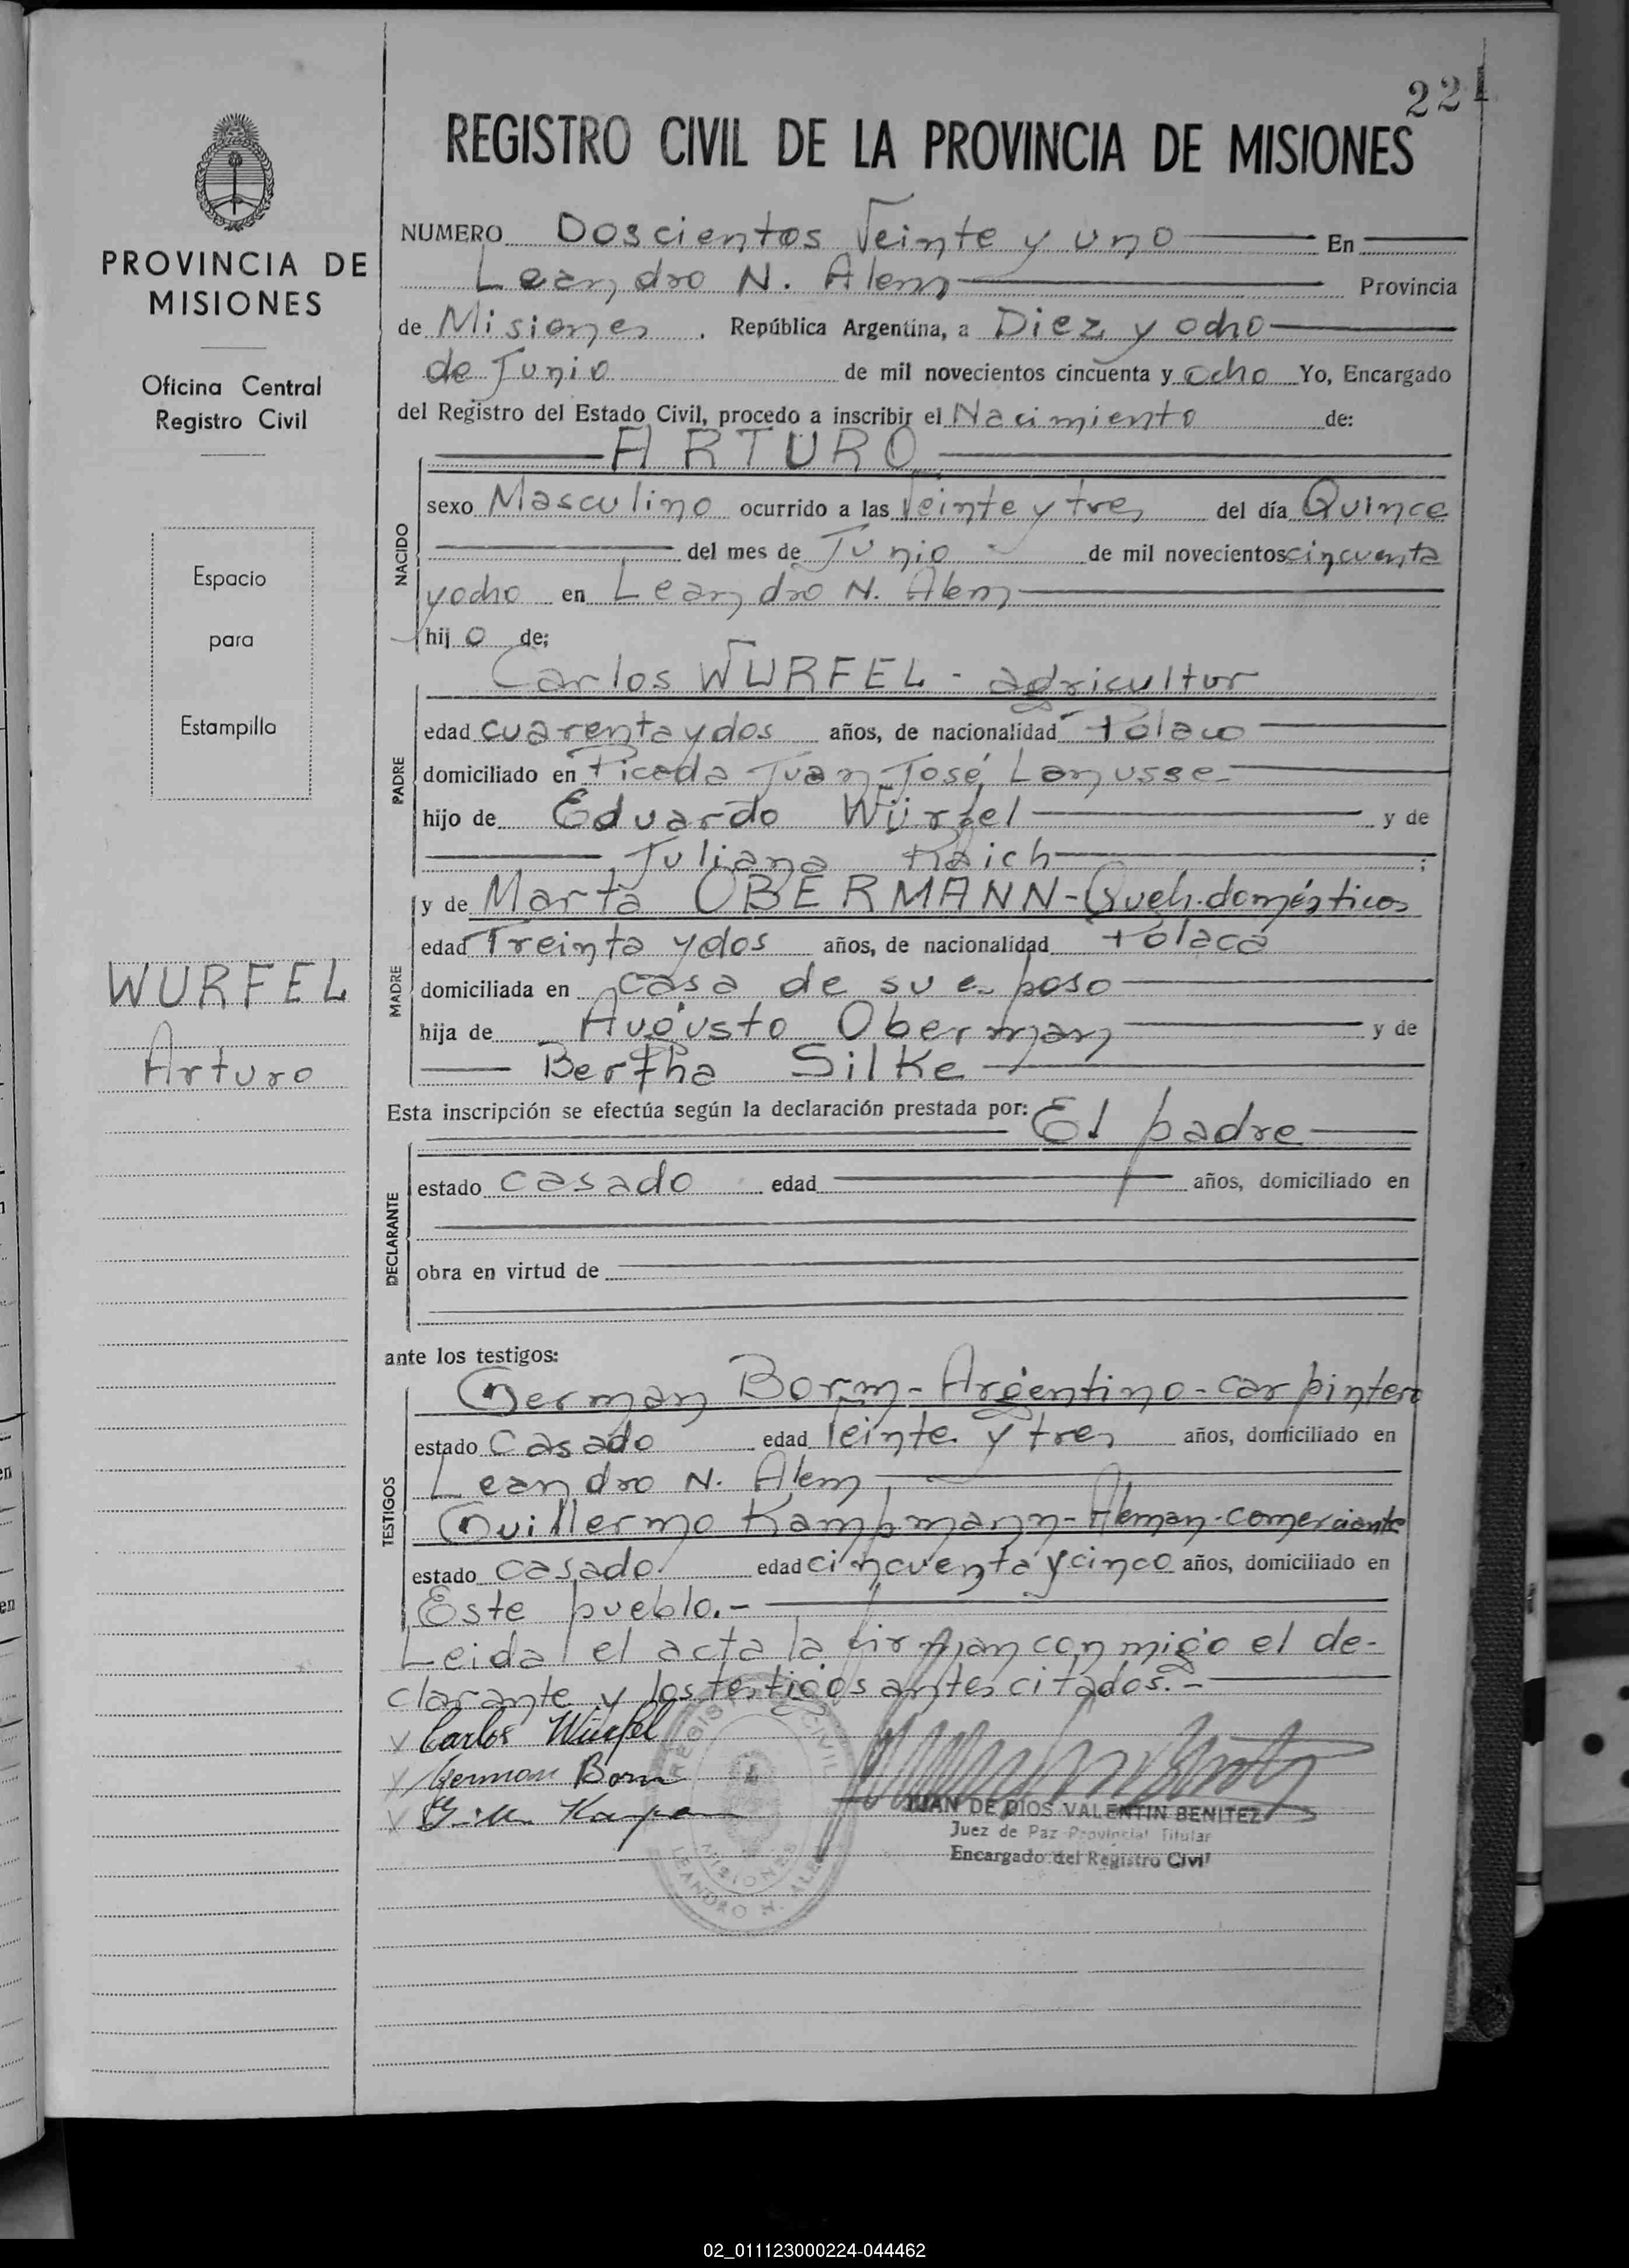 221
REGISTRO CIVIL DE LA PROVINCIA DE MISIONES
PROVINCIA DE
MISIONES
Oficina Central
Registro Civil
Espacio
para
Estampilla
WURFEL
Arturo
NUMERO Doscientos Veinte y uno En
Leandro N. Alem Provincia
de Misiones, República Argentina, a Diez y ocho
de Junio de mil novecientos cincuenta y ocho Yo, Encargado
del Registro del Estado Civil, procedo a inscribir el Nacimiento de:
ARTURO
NACIDO
sexo Masculino ocurrido a las Veinte y tres del día Quince
del mes de Junio de mil novecientos cincuenta
y ocho en Leandro N. Alem
hijo de;
PADRE
Carlos WURFEL - agricultor
edad cuarenta y dos años, de nacionalidad Polaco
domiciliado en Picada Juan José Lanusse
hijo de Eduardo Würfel y de
Juliana ;
MADRE
y de Marta OBERMANN - Queh. domésticos
edad Treinta y dos años, de nacionalidad Polaca
domiciliada en casa de su esposo
hija de Augusto Oberman y de
Bertha Silke
Esta inscripción se efectúa según la declaración prestada por: El padre
DECLARANTE
estado casado edad años, domiciliado en
obra en virtud de
ante los testigos:
TESTIGOS
German Born - Argentino - carpintero
estado Casado edad Veinte y tres años, domiciliado en
Leandro N. Alem
Guillermo Kampmann - Aleman - comerciante
estado casado edad cincuenta y cinco años, domiciliado en
Este pueblo.-
Leida el acta la firman conmigo el de-
clarante y los testigos antes citados.-
Carlos Würfel
German Born
REGISTRO CIVIL
MISIONES
LEANDRO N. ALEM
JUAN DE DIOS VALENTIN BENITEZ
Juez de Paz Provincial Titular
Encargado del Registro Civil
02_011123000224-044462